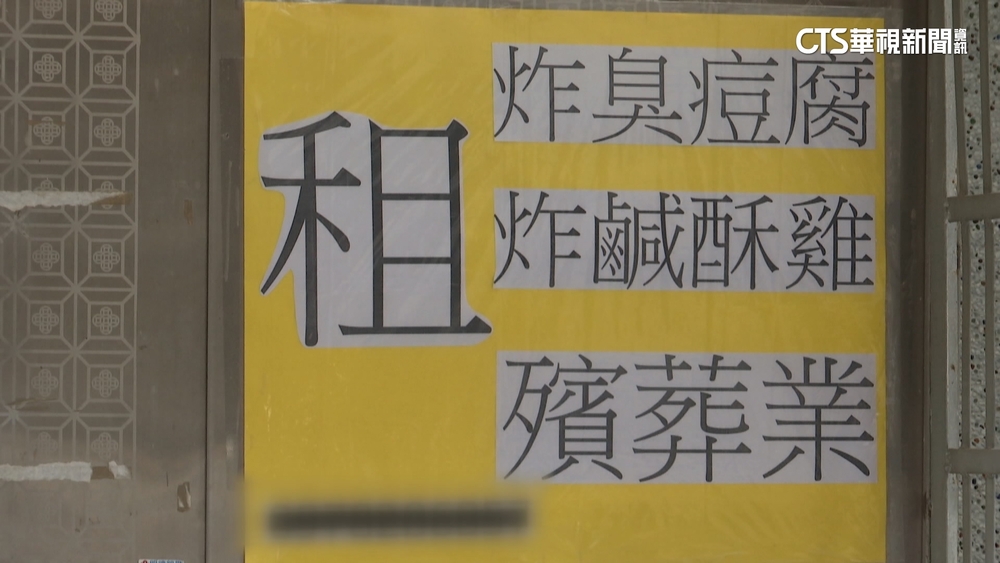 CTS華視新聞資訊
租
炸臭痘腐
炸鹹酥雞
殯葬業